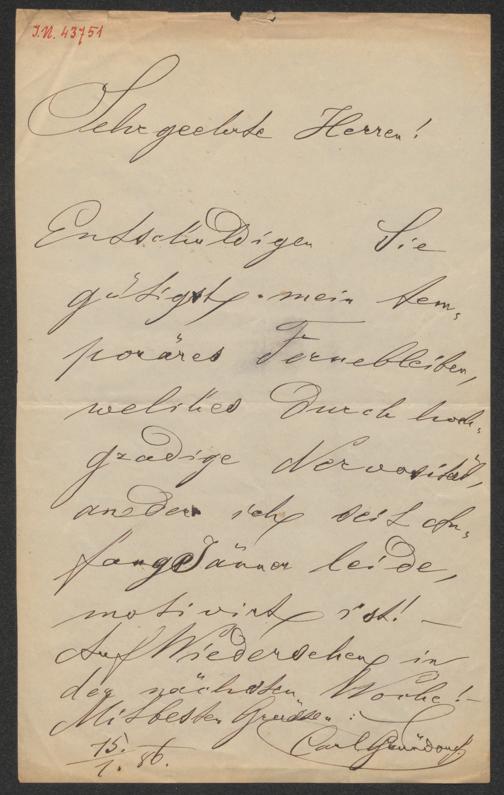 J.N. 43751
Sehr geehrte Herren!
Entschuldigen Sie
gütigst mein tem-
poräres Fernebleiben,
welches durch hoch-
gradige Nervosität,
an der ich seit An-
fangs Jänner leide,
motivirt ist! —
Auf Wiedersehen in
der nächsten Woche! —
Mit besten Grüssen:
Carl Gründorf
15./1. 86.